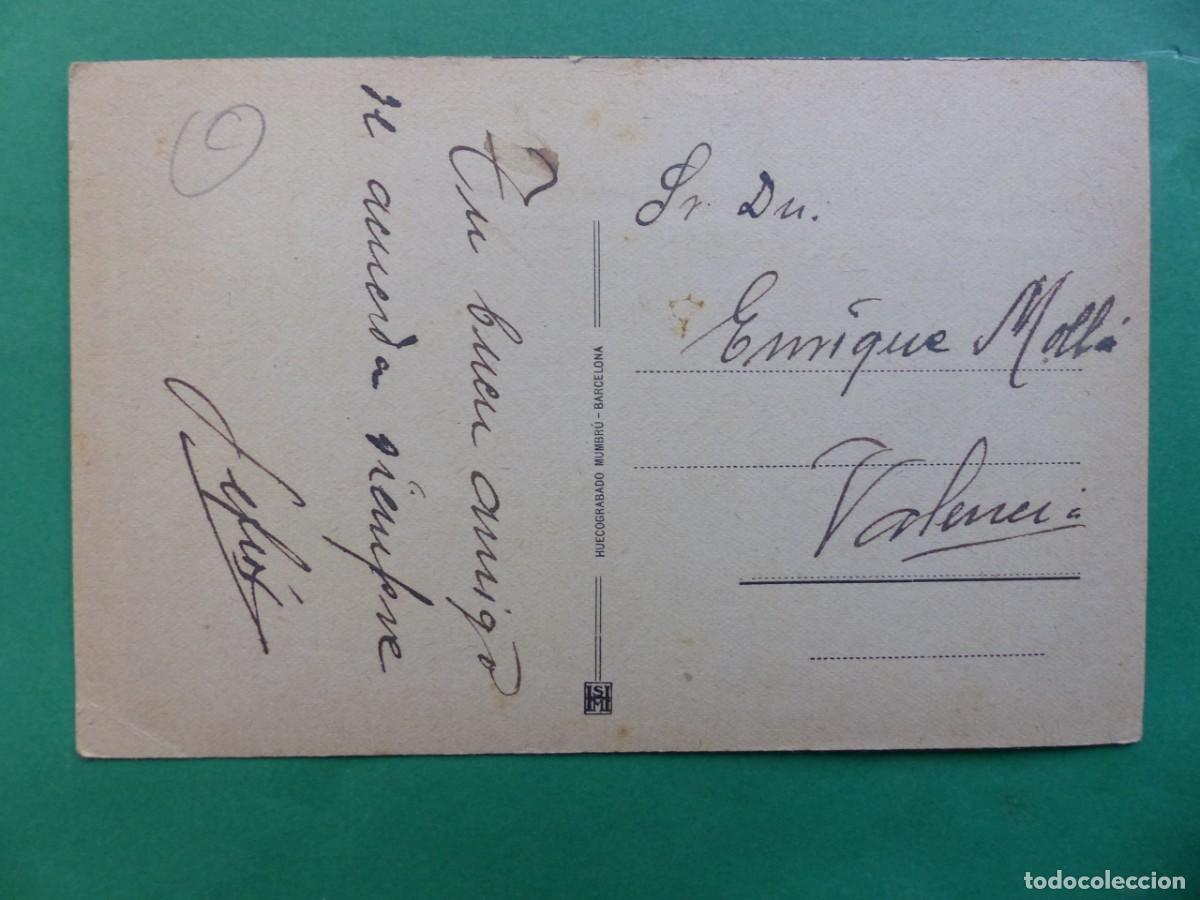 Tu buen amigo
se acuerda siempre
HUECOGRABADO MUMBRÚ - BARCELONA
Sr. Dn.
Enrique Mollá
Valencia
todocoleccion